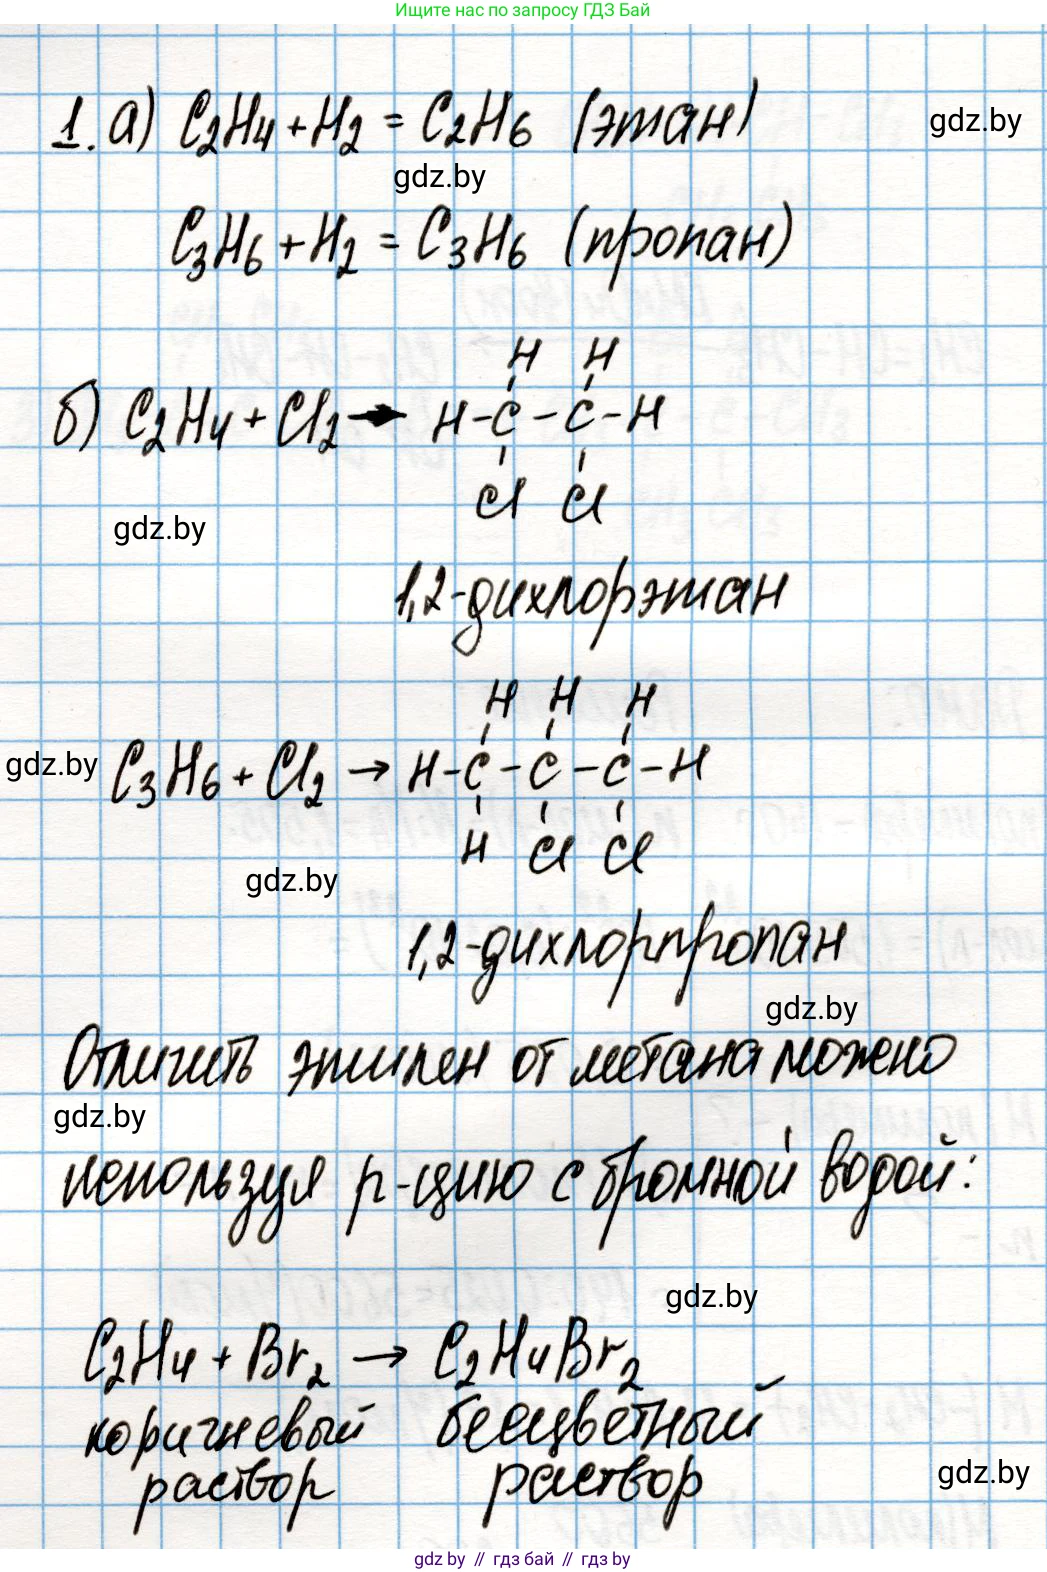 Ищите нас по запросу ГДЗ Бай
1. а) C₂H₄ + H₂ = C₂H₆ (этан)
gdz.by
gdz.by
C₃H₆ + H₂ = C₃H₆ (пропан)
H H
б) C₂H₄ + Cl₂ → H-C-C-H
Cl Cl
gdz.by
1,2-дихлорэтан
H H H
gdz.by
C₃H₆ + Cl₂ → H-C-C-C-H
H Cl Cl
gdz.by
1,2-дихлорпропан
gdz.by
Отличить этилен от метана можно
gdz.by
используя р-цию с бромной водой:
gdz.by
C₂H₄ + Br₂ → C₂H₄Br₂
коричневый бесцветный
раствор раствор
gdz.by
gdz.by // гдз бай // gdz.by